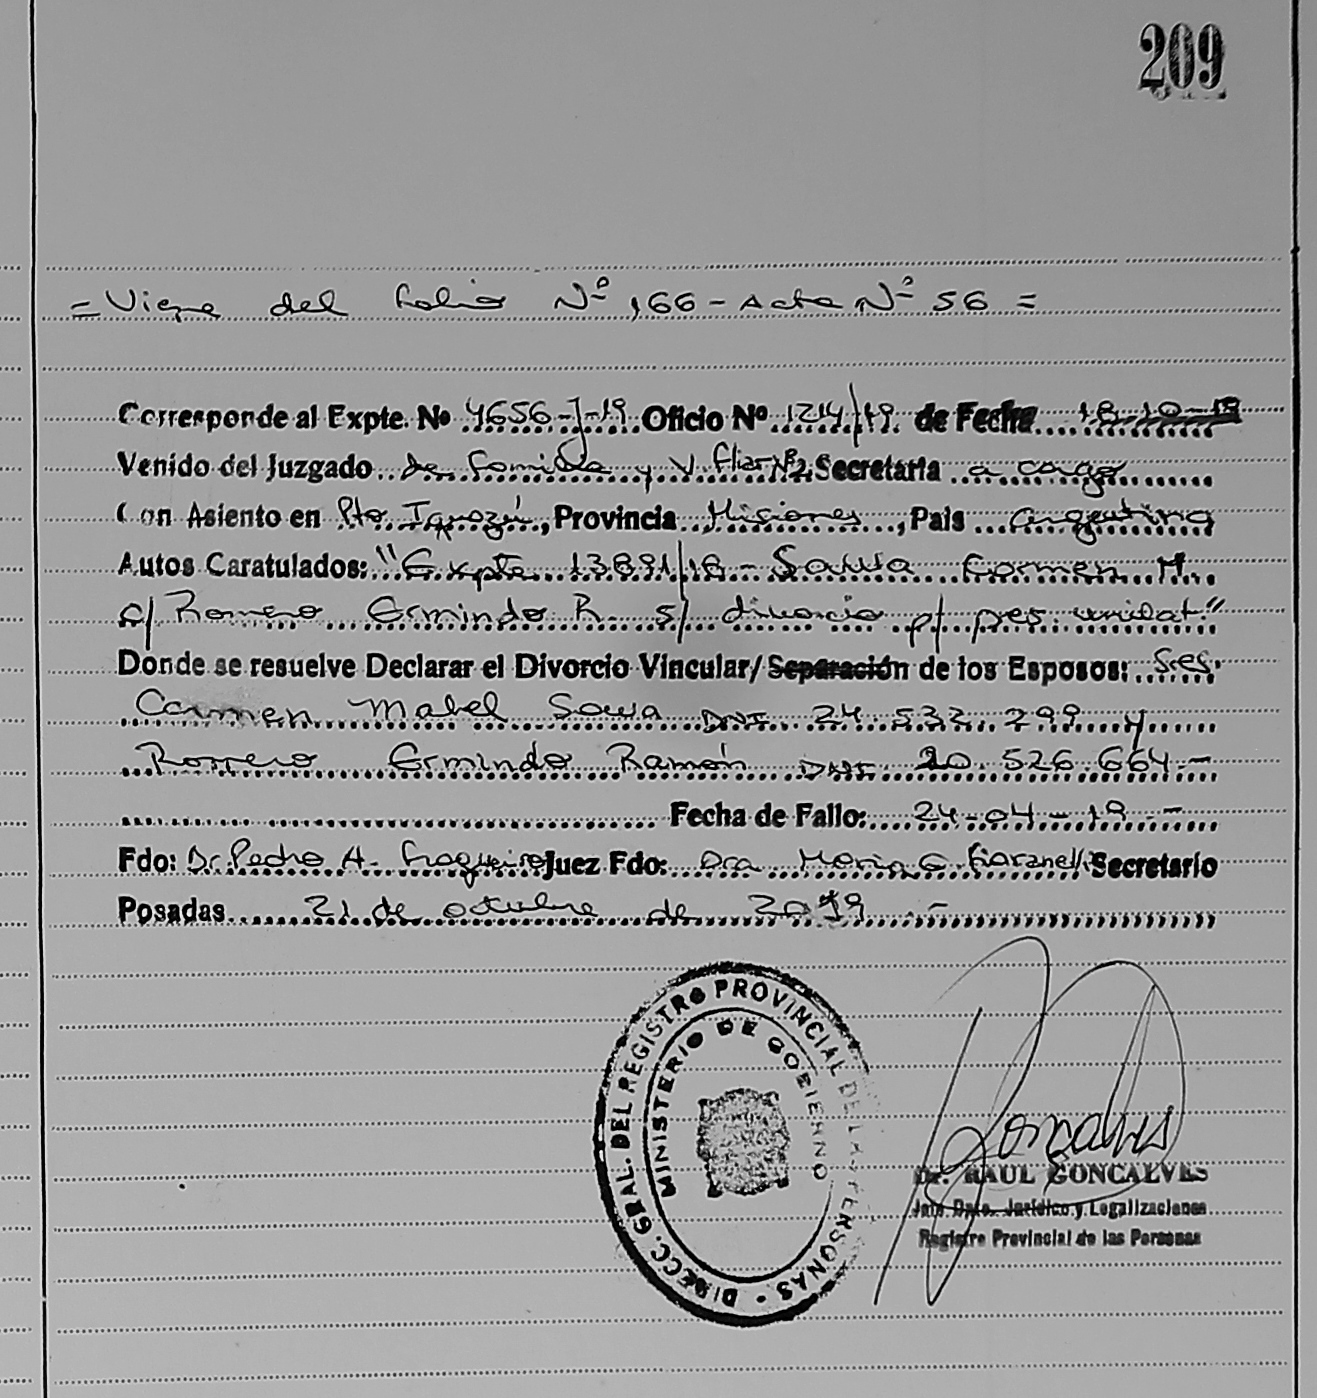 209
= Viene del folio Nº 166 - Acta Nº 56 =
Corresponde al Expte. Nº 4656-J-19 Oficio Nº 1214/19 de Fecha 18-10-19
Venido del Juzgado de Familia y V. fliar Nº2 Secretaria a cargo
Con Asiento en Pto. Iguazú, Provincia Misiones, Pais Argentina
Autos Caratulados: "Expte 13891/18 - Sawa Carmen M.
c/ Romero Ermindo R. s/ divorcio p/ pres. unilat."
Donde se resuelve Declarar el Divorcio Vincular/Separación de los Esposos: Sres.
Carmen Mabel Sawa DNI 24.532.299 y
Romero Ermindo Ramón DNI 20.526.664.-
Fecha de Fallo: 24-04-19 -
Fdo: Dr. Pedro A. Juez Fdo: Dra Maria G. Secretario
Posadas 21 de octubre de 2019 -
DIRECC. GRAL. DEL REGISTRO PROVINCIAL DE LAS PERSONAS
MINISTERIO DE GOBIERNO
Dr. RAUL GONCALVES
Jefe Dpto. Jurídico y Legalizaciones
Registro Provincial de las Personas